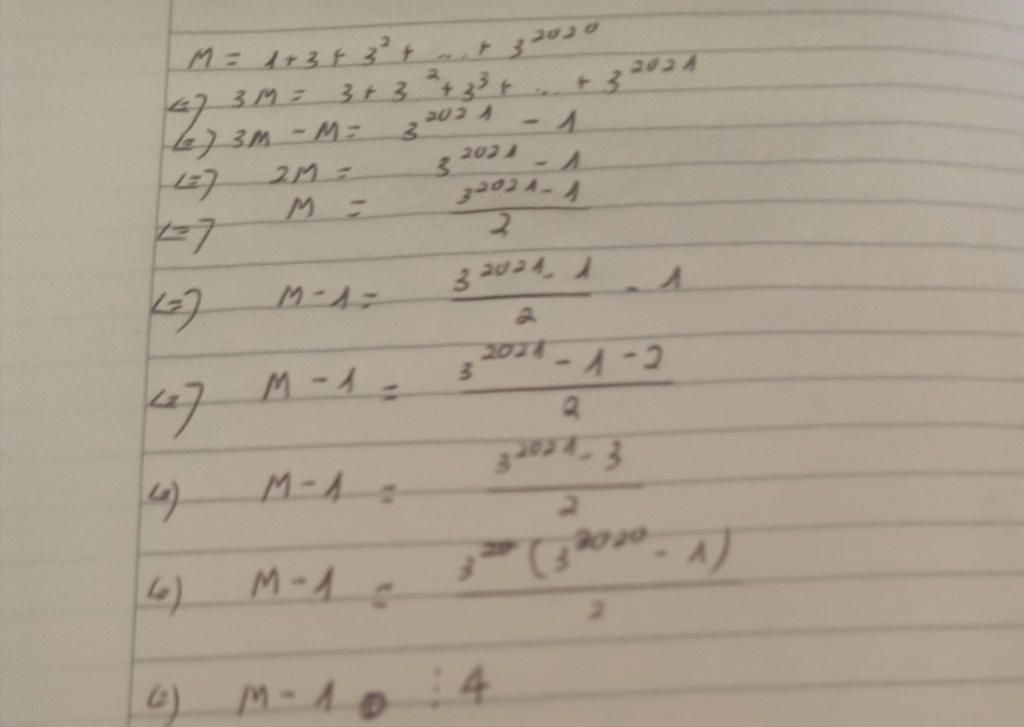 M = 1 + 3 + 3² + ... + 3²⁰²⁰
<=> 3M = 3 + 3² + 3³ + ... + 3²⁰²¹
<=> 3M - M = 3²⁰²¹ - 1
<=> 2M = 3²⁰²¹ - 1
<=> M = (3²⁰²¹ - 1)/2
<=> M - 1 = (3²⁰²¹ - 1)/2 - 1
<=> M - 1 = (3²⁰²¹ - 1 - 2)/2
<=> M - 1 = (3²⁰²¹ - 3)/2
<=> M - 1 = 3(3²⁰²⁰ - 1)/2
<=> M - 1 ⋮ 4